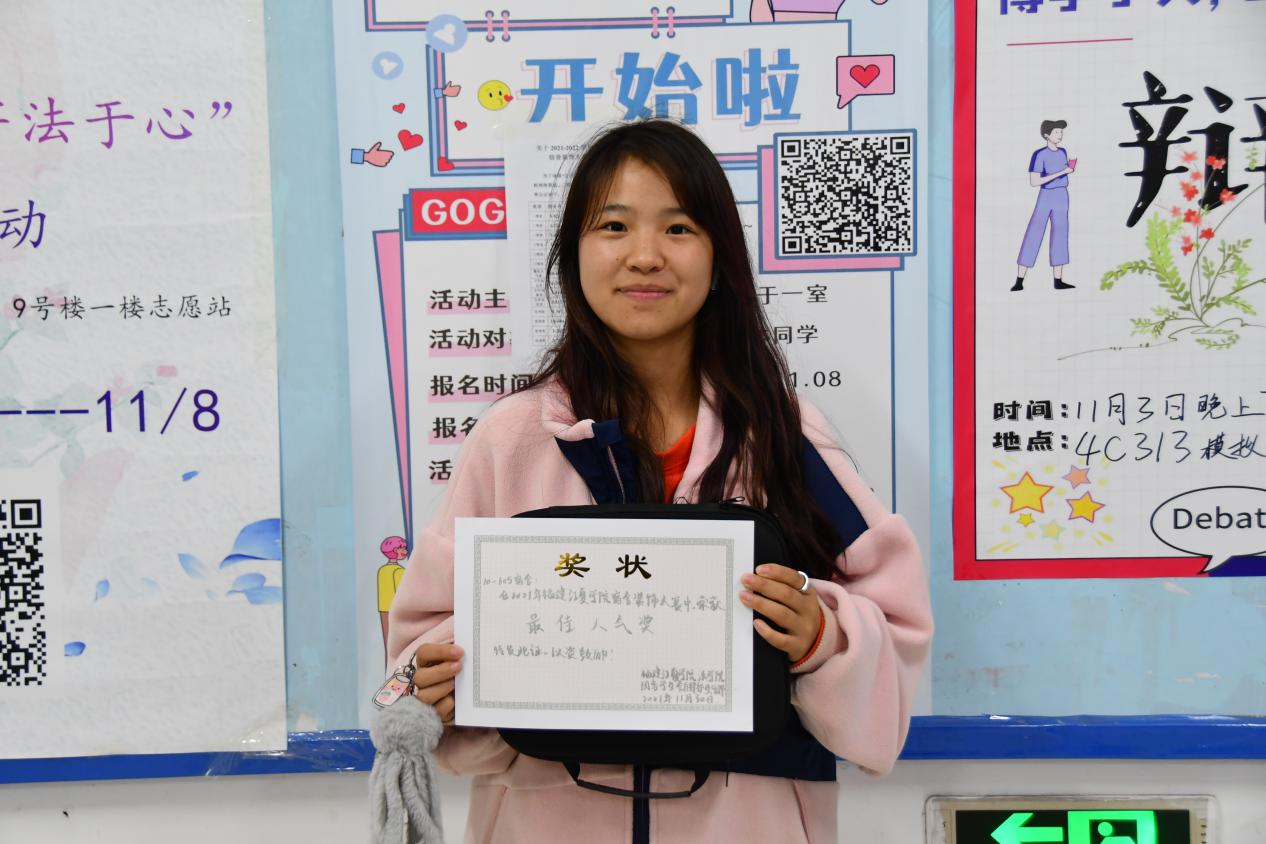 于法于心”
动
9号楼一楼志愿站
---11/8
开始啦
关于2021-2022学
GOG
活动主
于一室
活动对
同学
报名时间
1.08
报名
活
辩
时间:11月3日晚上
地点:4C313模拟
Debat
奖状
10-605宿舍:
在2021年福建江夏学院宿舍装饰大赛中,荣获
最佳人气奖
特发此证,以资鼓励!
福建江夏学院法学院
2021年11月30日